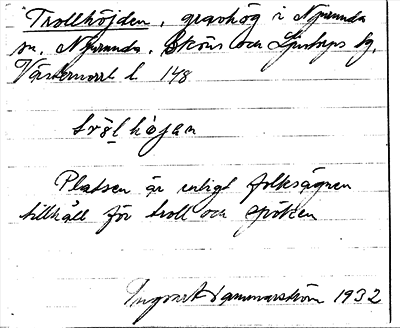 Trollhöjden, gravhög i Njurunda
sn. Njurunda, Sköns och Ljustorps tg.
Västernorrl. l. 148
tròl hǫjan
Platsen är enligt folksägnen
tillhåll för troll och spöken
Hammarström 1932